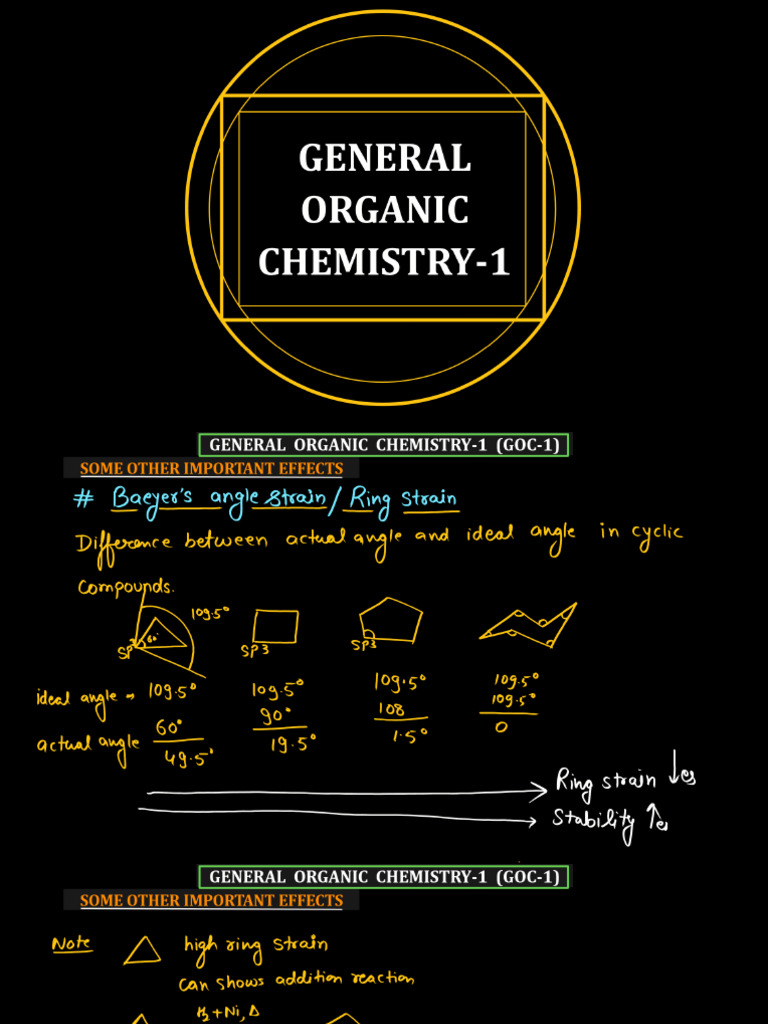 GENERAL
ORGANIC
CHEMISTRY-1
GENERAL ORGANIC CHEMISTRY-1 (GOC-1)
SOME OTHER IMPORTANT EFFECTS
# Baeyer's angle strain / Ring strain
Difference between actual angle and ideal angle in cyclic
compounds.
109.5°
60°
SP3 SP3 SP3
ideal angle → 109.5° 109.5° 109.5° 109.5°
actual angle 60° 90° 108 109.5°
49.5° 19.5° 1.5° 0
Ring strain ↓es
Stability ↑es
GENERAL ORGANIC CHEMISTRY-1 (GOC-1)
SOME OTHER IMPORTANT EFFECTS
Note high ring strain
can shows addition reaction
H2 + Ni, Δ